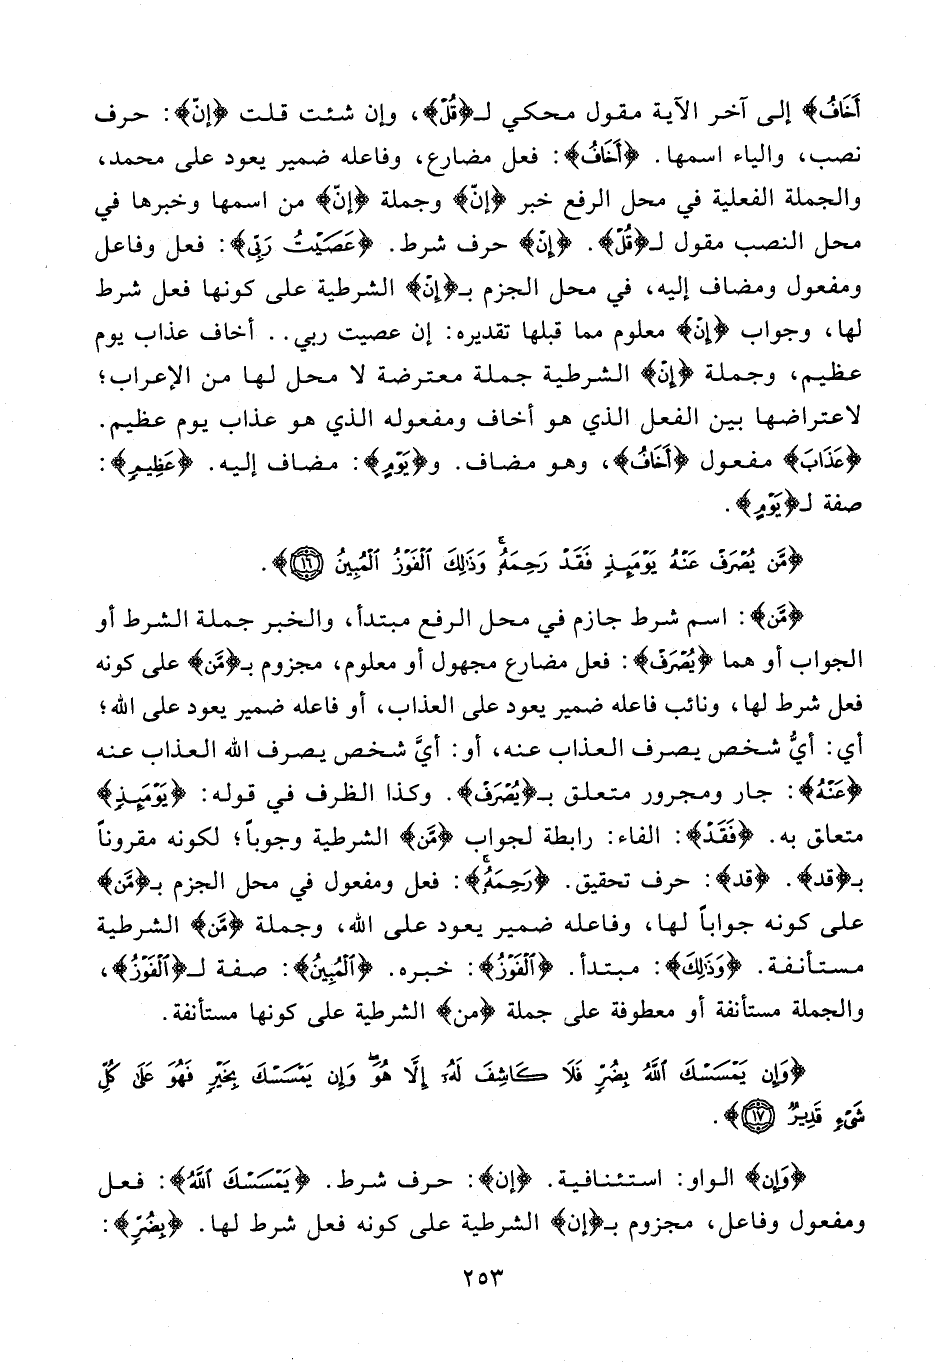 أَخَافُ﴾ إلى آخر الآية مقول محكي لـ﴿قُلْ﴾، وإن شئت قلت ﴿إنّ﴾: حرف
نصب، والياء اسمها. ﴿أَخَافُ﴾: فعل مضارع، وفاعله ضمير يعود على محمد،
والجملة الفعلية في محل الرفع خبر ﴿إنّ﴾ وجملة ﴿إنّ﴾ من اسمها وخبرها في
محل النصب مقول لـ﴿قُلْ﴾. ﴿إِنْ﴾ حرف شرط. ﴿عَصَيْتُ رَبِّى﴾: فعل وفاعل
ومفعول ومضاف إليه، في محل الجزم بـ﴿إنْ﴾ الشرطية على كونها فعل شرط
لها، وجواب ﴿إنْ﴾ معلوم مما قبلها تقديره: إن عصيت ربي.. أخاف عذاب يوم
عظيم، وجملة ﴿إنْ﴾ الشرطية جملة معترضة لا محل لها من الإعراب؛
لاعتراضها بين الفعل الذي هو أخاف ومفعوله الذي هو عذاب يوم عظيم.
﴿عَذَابَ﴾ مفعول ﴿أَخَافُ﴾، وهو مضاف. و﴿يَوْمٍ﴾: مضاف إليه. ﴿عَظِيمٍ﴾:
صفة لـ﴿يَوْمٍ﴾.
﴿مَّن يُصْرَفْ عَنْهُ يَوْمَئِذٍ فَقَدْ رَحِمَهُۥۚ وَذَٰلِكَ ٱلْفَوْزُ ٱلْمُبِينُ ١٦﴾.
﴿مَّن﴾: اسم شرط جازم في محل الرفع مبتدأ، والخبر جملة الشرط أو
الجواب أو هما ﴿يُصْرَفْ﴾: فعل مضارع مجهول أو معلوم، مجزوم بـ﴿مَّن﴾ على كونه
فعل شرط لها، ونائب فاعله ضمير يعود على العذاب، أو فاعله ضمير يعود على الله؛
أي: أيُّ شخص يصرف العذاب عنه، أو: أيَّ شخص يصرف الله العذاب عنه
﴿عَنْهُ﴾: جار ومجرور متعلق بـ﴿يُصْرَفْ﴾. وكذا الظرف في قوله: ﴿يَوْمَئِذٍ﴾
متعلق به. ﴿فَقَدْ﴾: الفاء: رابطة لجواب ﴿مَّن﴾ الشرطية وجوباً؛ لكونه مقروناً
بـ﴿قد﴾. ﴿قد﴾: حرف تحقيق. ﴿رَحِمَهُۥۚ﴾: فعل ومفعول في محل الجزم بـ﴿مَّن﴾
على كونه جواباً لها، وفاعله ضمير يعود على الله، وجملة ﴿مَّن﴾ الشرطية
مستأنفة. ﴿وَذَٰلِكَ﴾: مبتدأ. ﴿ٱلْفَوْزُ﴾: خبره. ﴿ٱلْمُبِينُ﴾: صفة لـ﴿ٱلْفَوْزُ﴾،
والجملة مستأنفة أو معطوفة على جملة ﴿من﴾ الشرطية على كونها مستأنفة.
﴿وَإِن يَمْسَسْكَ ٱللَّهُ بِضُرٍّ فَلَا كَاشِفَ لَهُۥٓ إِلَّا هُوَۖ وَإِن يَمْسَسْكَ بِخَيْرٍ فَهُوَ عَلَىٰ كُلِّ
شَىْءٍ قَدِيرٌ ١٧﴾.
﴿وَإِن﴾ الواو: استئنافية. ﴿إن﴾: حرف شرط. ﴿يَمْسَسْكَ ٱللَّهُ﴾: فعل
ومفعول وفاعل، مجزوم بـ﴿إن﴾ الشرطية على كونه فعل شرط لها. ﴿بِضُرٍّ﴾:
٢٥٣